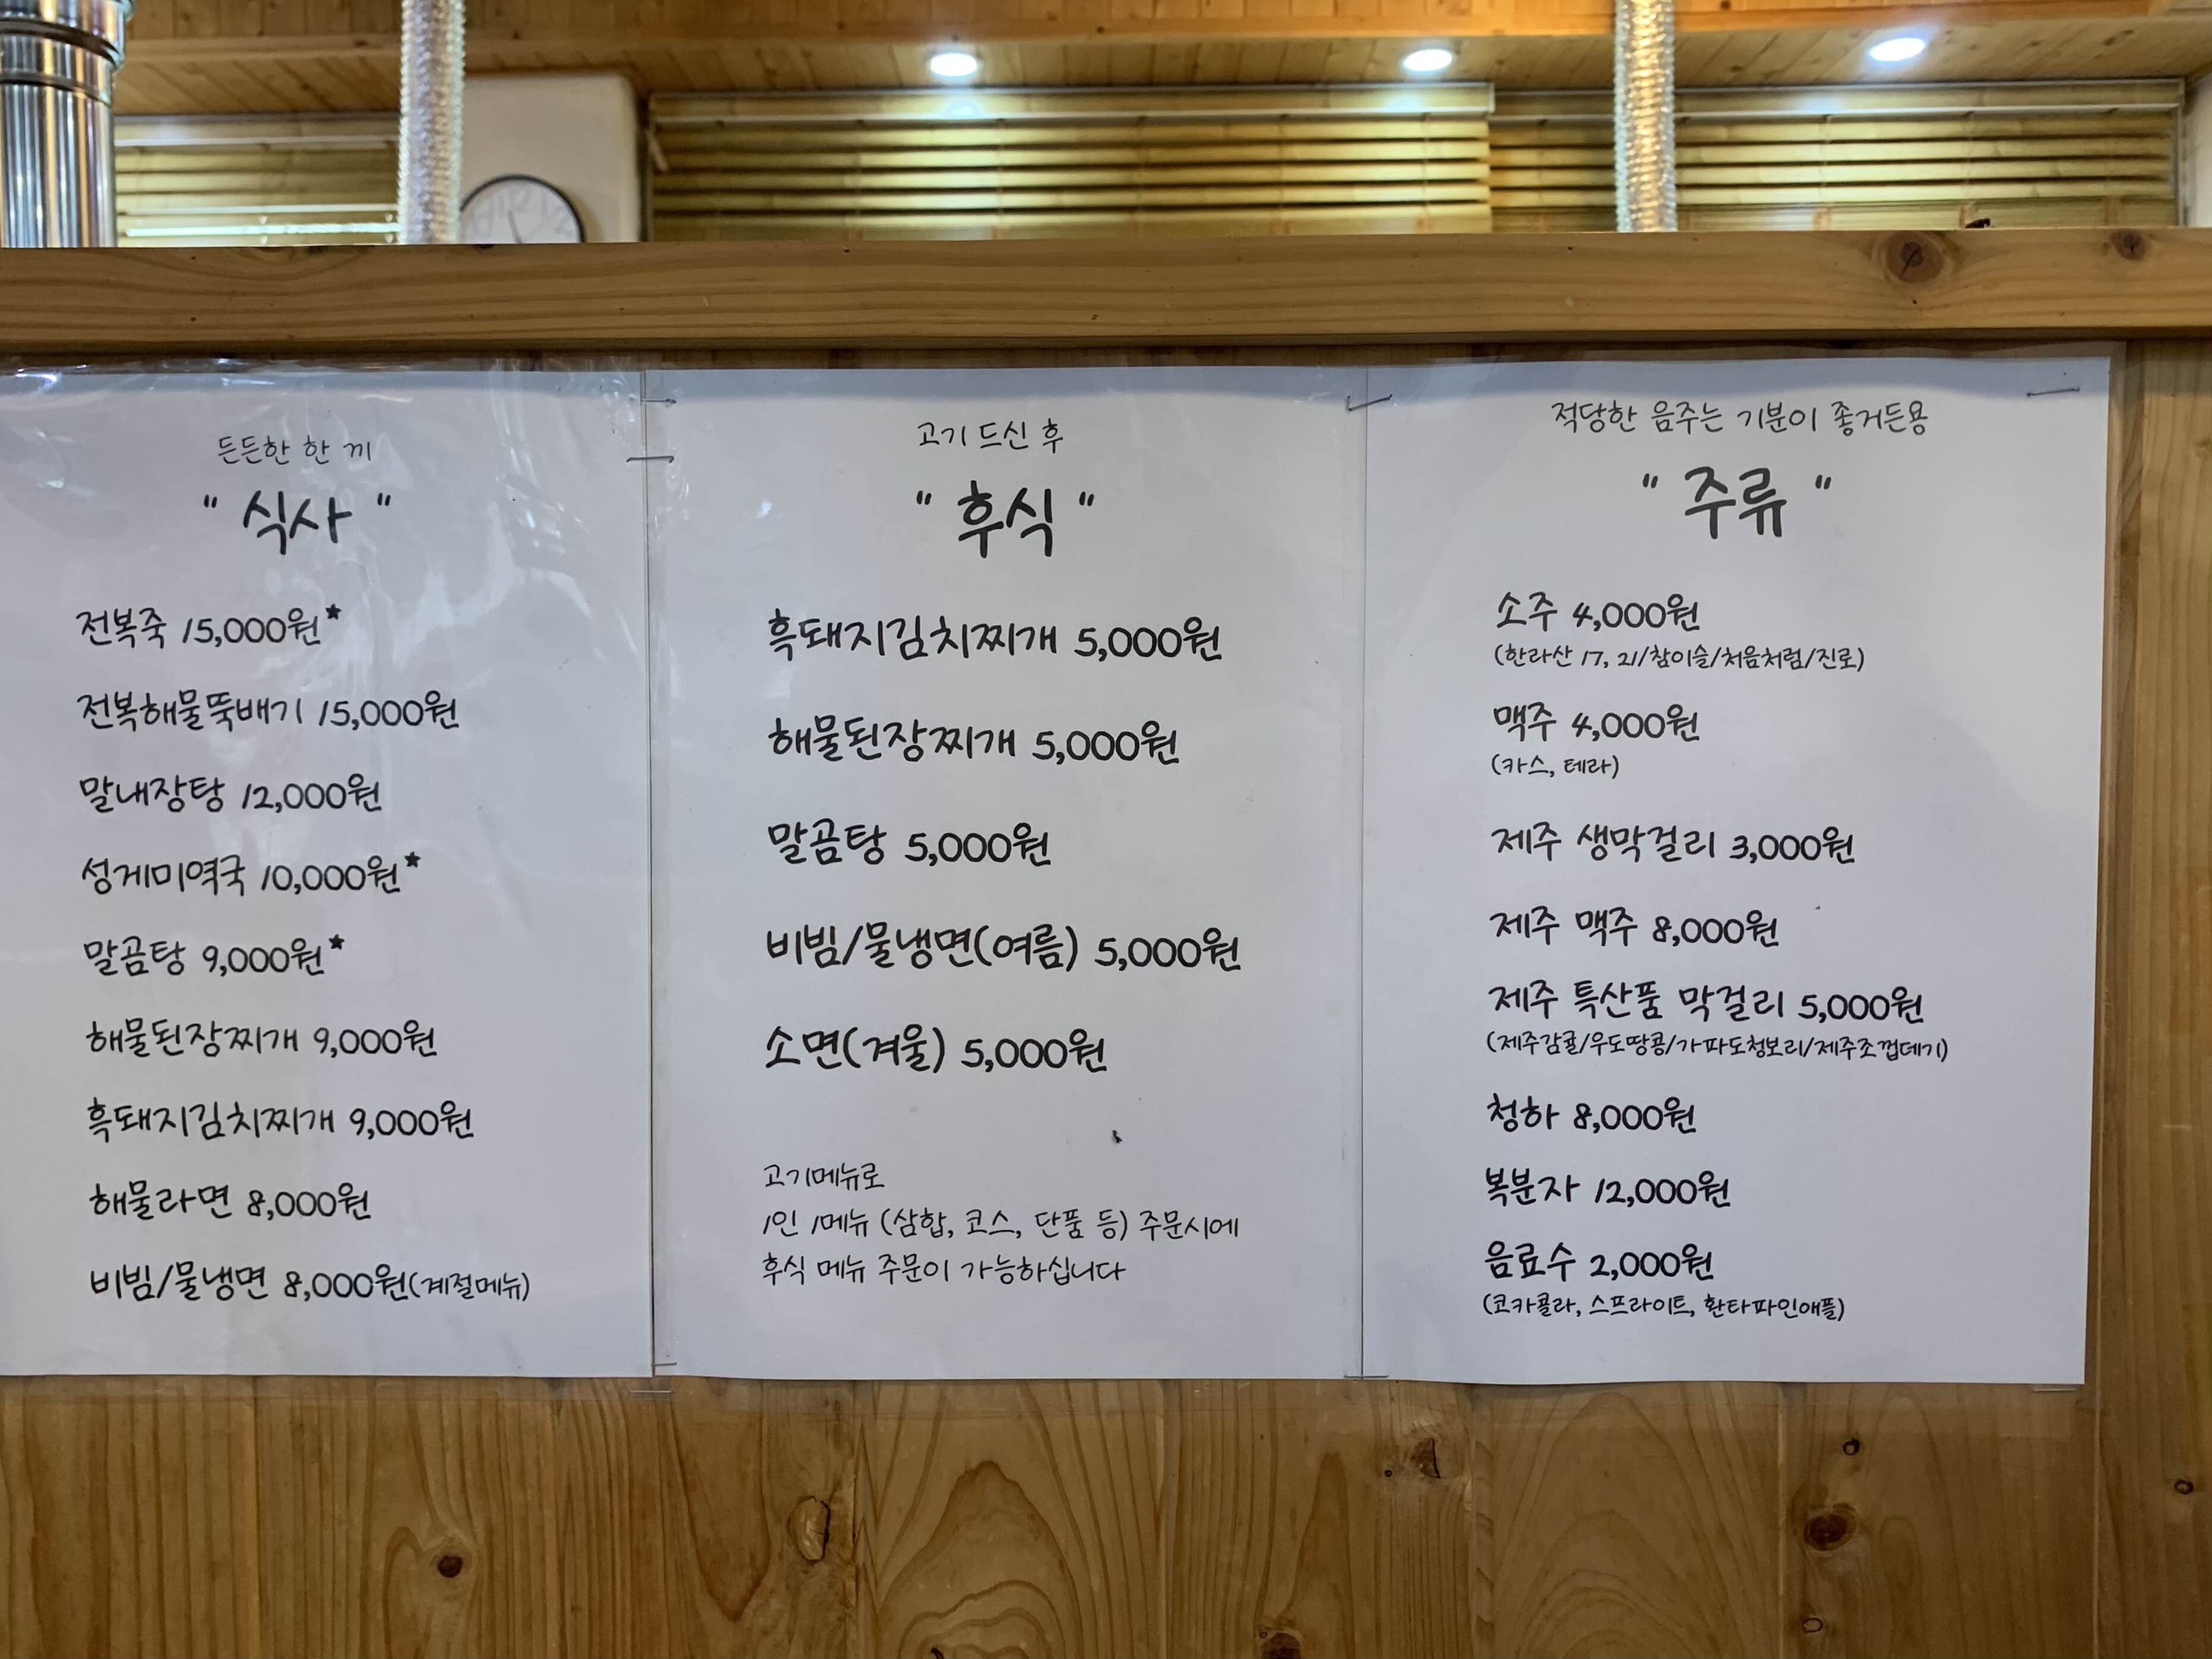 든든한 한 끼
" 식사 "
전복죽 15,000원★
전복해물뚝배기 15,000원
말내장탕 12,000원
성게미역국 10,000원★
말곰탕 9,000원★
해물된장찌개 9,000원
흑돼지김치찌개 9,000원
해물라면 8,000원
비빔/물냉면 8,000원(계절메뉴)
고기 드신 후
" 후식 "
흑돼지김치찌개 5,000원
해물된장찌개 5,000원
말곰탕 5,000원
비빔/물냉면(여름) 5,000원
소면(겨울) 5,000원
고기메뉴로
1인 1메뉴 (삼합, 코스, 단품 등) 주문시에
후식 메뉴 주문이 가능하십니다
적당한 음주는 기분이 좋거든용
" 주류 "
소주 4,000원
(한라산 17, 21/참이슬/처음처럼/진로)
맥주 4,000원
(카스, 테라)
제주 생막걸리 3,000원
제주 맥주 8,000원
제주 특산품 막걸리 5,000원
(제주감귤/우도땅콩/가파도청보리/제주조껍데기)
청하 8,000원
복분자 12,000원
음료수 2,000원
(코카콜라, 스프라이트, 환타파인애플)